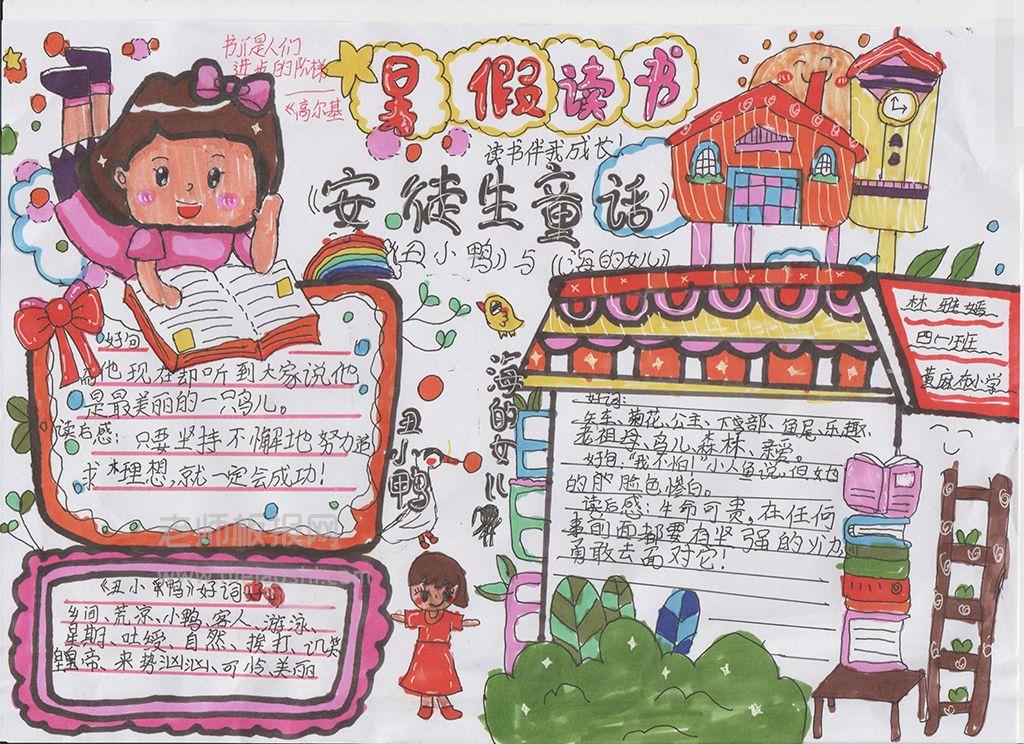 书川是人们
进步的阶梯
《高尔基
暑假读书
读书伴我成长
《安徒生童话》
《丑小鸭》与《海的女儿》
好句
他现在却听到大家说他
是最美丽的一只鸟儿。
读后感:只要坚持不懈地努力追
求理想,就一定会成功!
丑小鸭
海的女儿
《丑小鸭》好词
乡间、荒凉、小鸭、客人、游泳、
星期、吐绶、自然、挨打、讥笑
皇帝、来势汹汹、可怜、美丽
好词:
花、公主、鱼尾、乐趣、
老祖母、鸟儿、森林、亲爱。
好句:"我不怕!"小人鱼说,但她
的脸色惨白。
读后感:生命可贵,在任何
事前面都要有坚强的
勇敢去面对它!
四(1)班
黄麻布小学
老师板报网